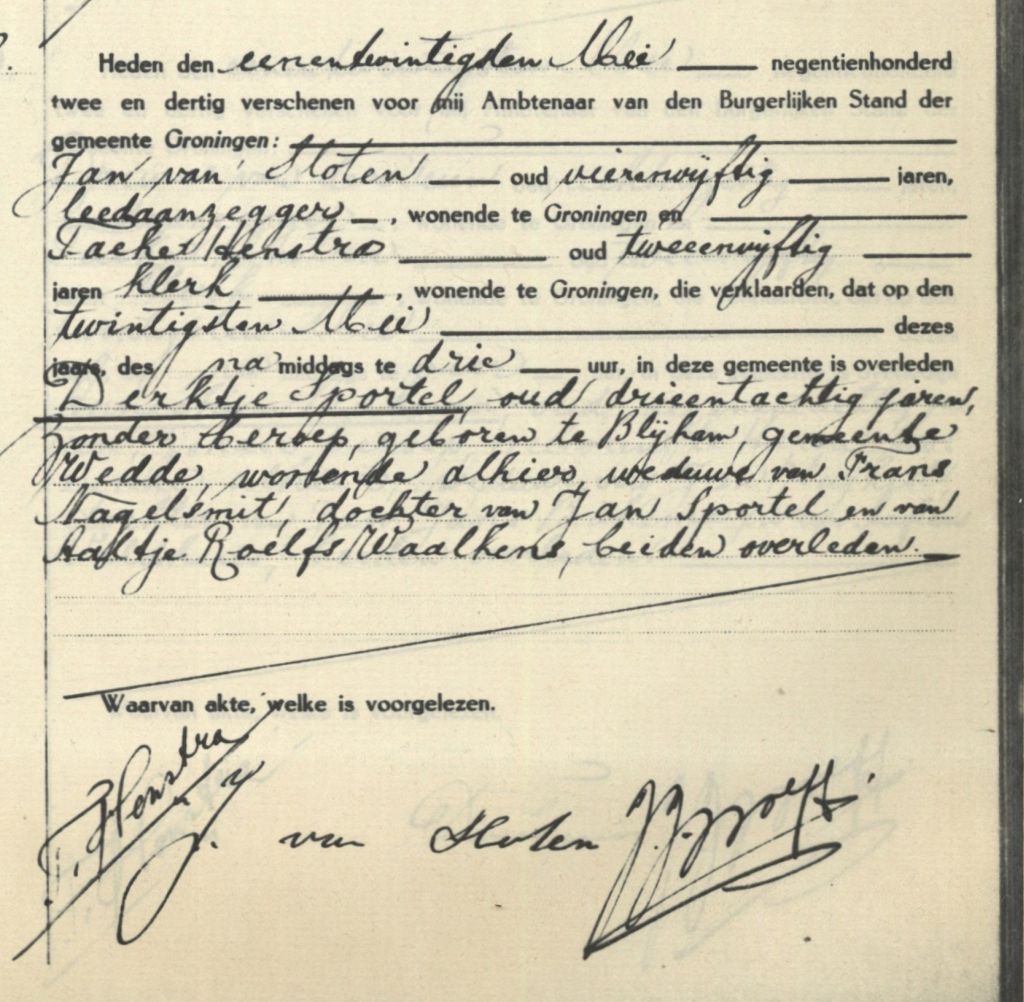 Heden den eenentwintigsten Mei negentienhonderd
twee en dertig verschenen voor mij Ambtenaar van den Burgerlijken Stand der
gemeente Groningen:
Jan van Sloten oud vierenvijftig jaren,
leedaanzegger, wonende te Groningen en
Taeke Henstra oud tweeenvijftig
jaren klerk, wonende te Groningen, die verklaarden, dat op den
twintigsten Mei dezes
jaars, des namiddags te drie uur, in deze gemeente is overleden
Derktje Sportel, oud drieentachtig jaren,
zonder beroep, geboren te Blijham, gemeente
Wedde, wonende alhier, weduwe van Frans
Nagelsmit, dochter van Jan Sportel en van
Aaltje Roelfs Waalkens, beiden overleden.
Waarvan akte, welke is voorgelezen.
T. Henstra
J. van Sloten